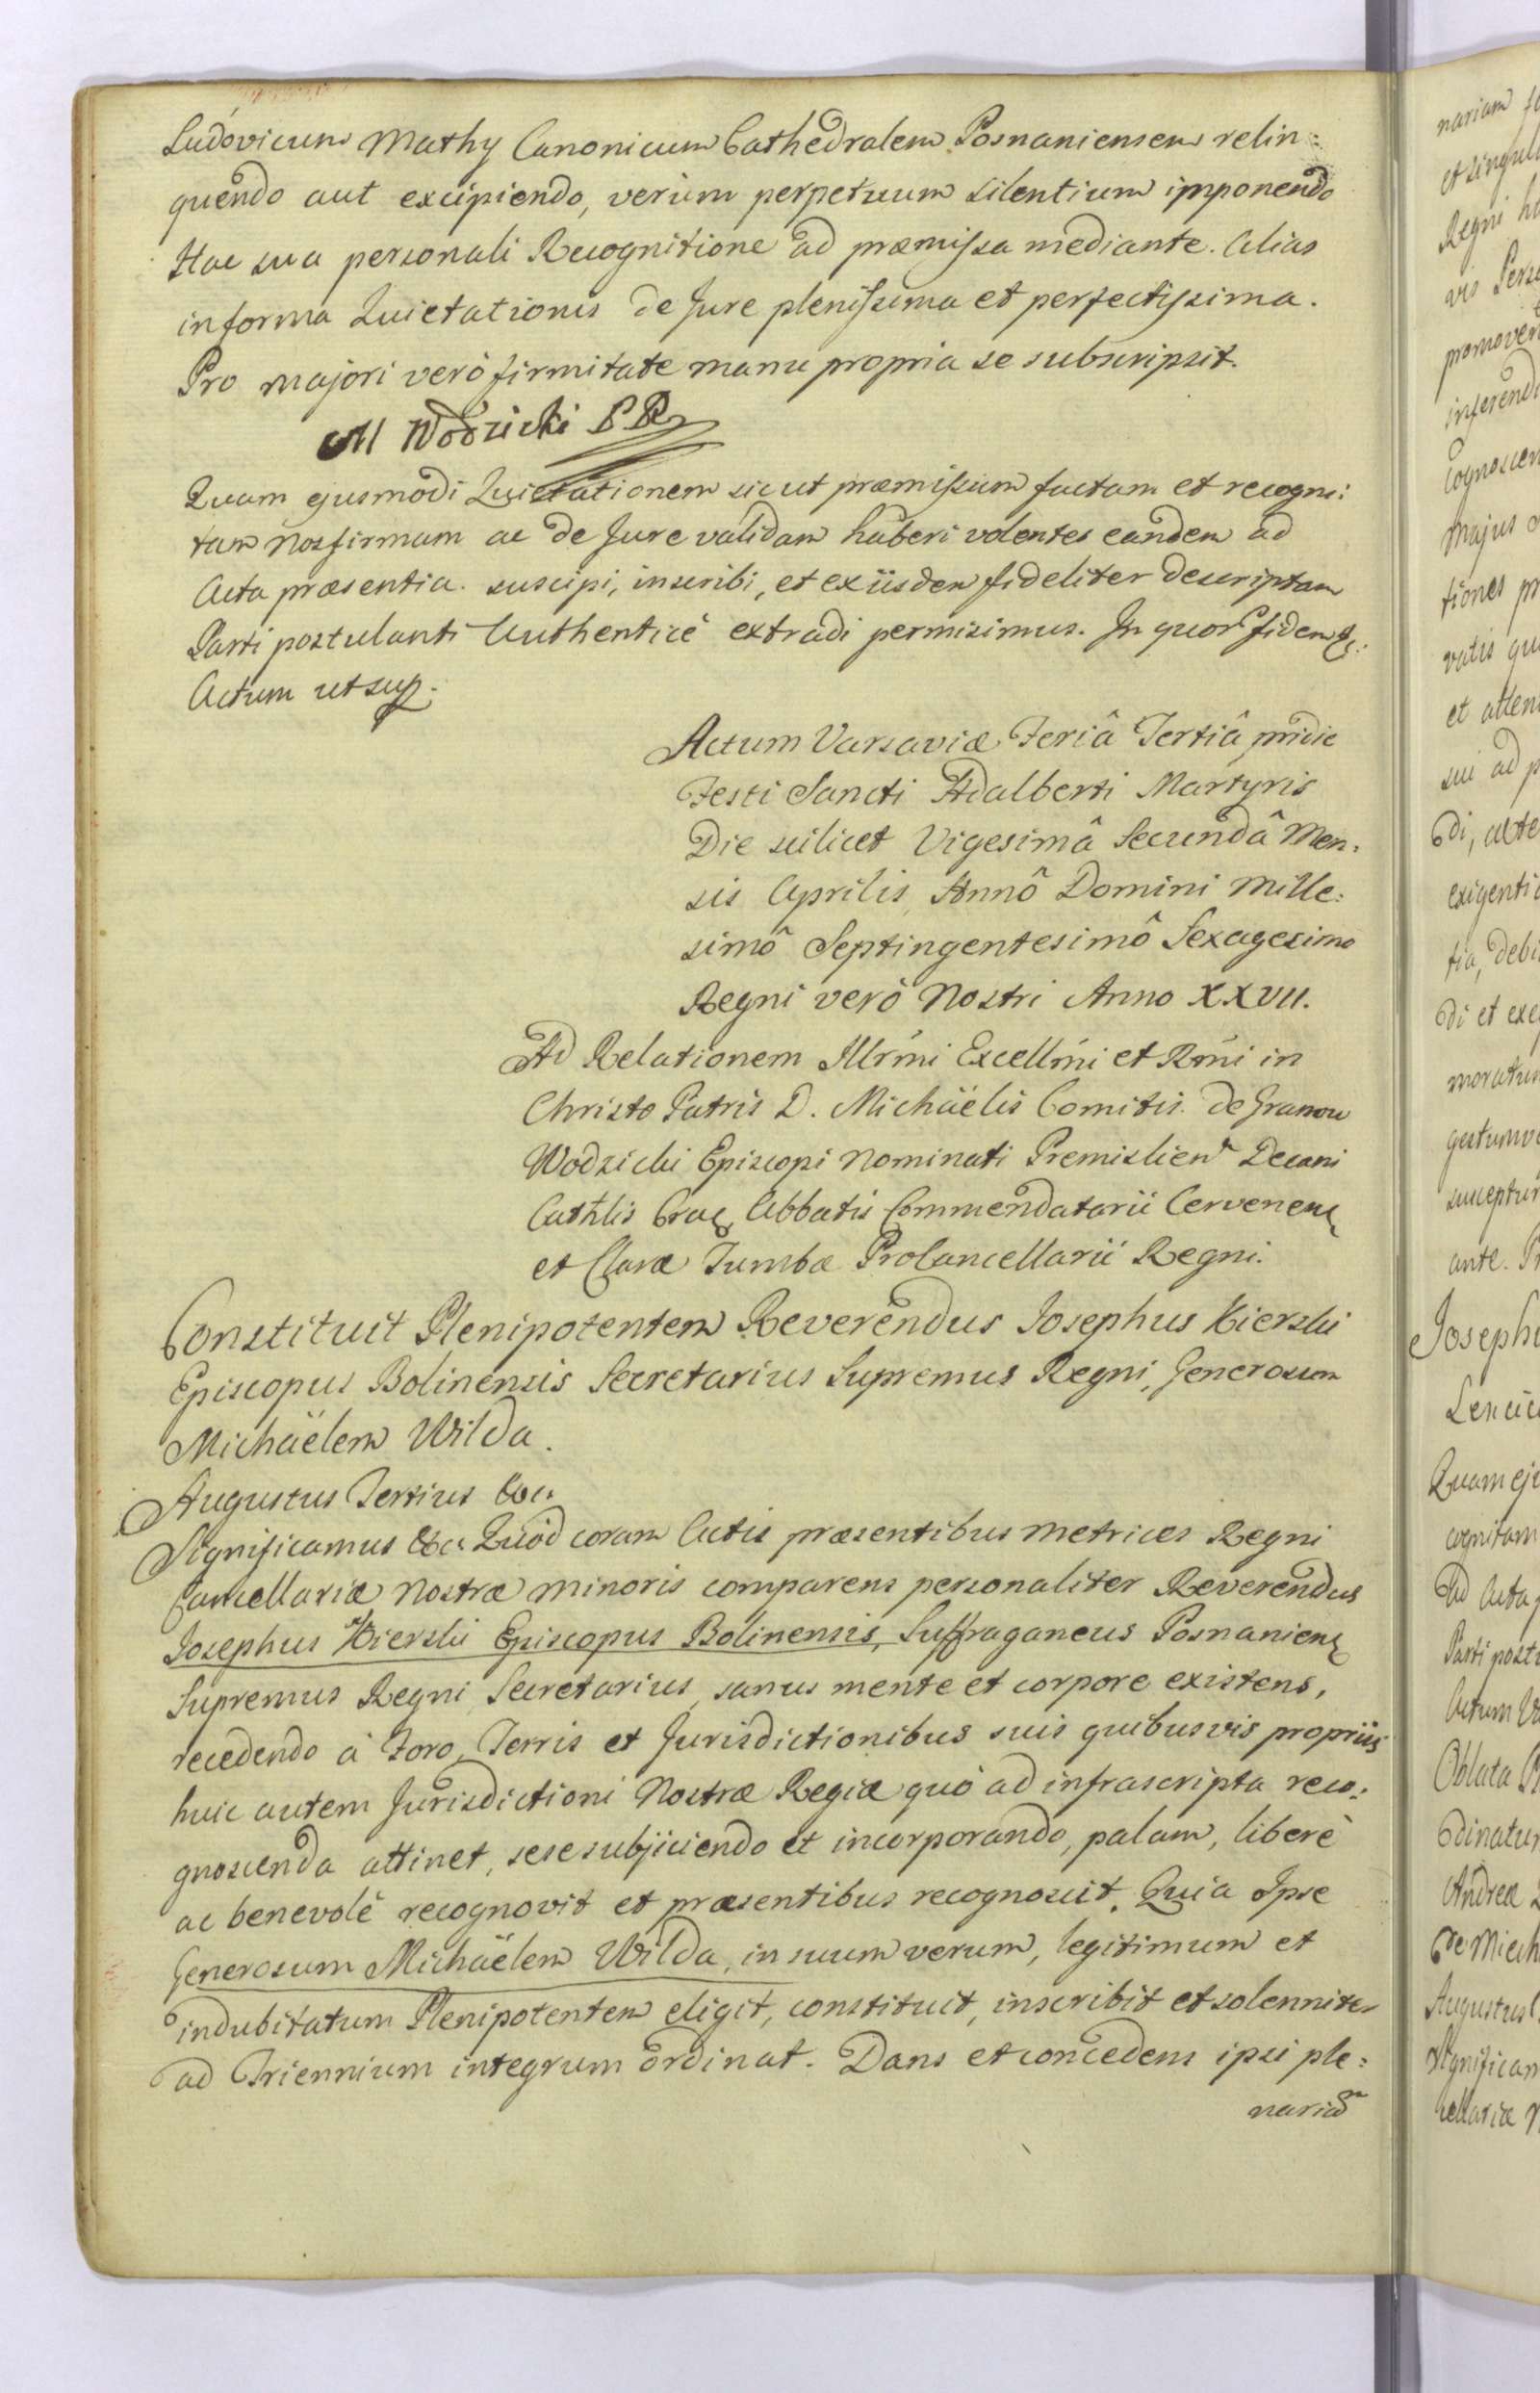 Ludovicum Mathy Canonicum Cathedralem Posnaniensem relin:
quendo aut excipiendo, verùm perpetuum silentium imponendo
Hac sua personali Recognitione ad præmissa mediante. Alias
in forma Quietationis de Jure plenissima et perfectissima.
Pro majori verò firmitate manu propria se subscripsit.
M Wodzicki PR
Quam ejusmodi Quietationem sicut præmissum factam et recogni:
tam Nos firmam ac de Jure validam haberi volentes eandem ad
Acta præsentia suscipi, inscribi, et ex iisdem fideliter descriptam
Parti postulanti Authenticè extradi permisimus. In quor fidem &c.
Actum ut sup.
Actum Varsaviæ Feriâ Tertiâ pridie
Festi Sancti Adalberti Martyris
Die scilicet Vigesimâ Secundâ Men:
sis Aprilis Annô Domini Mille:
simô Septingentesimô Sexagesimo
Regni verò Nostri Anno XXVII.
Ad Relationem Illrmi Excellmi et Rmi in
Christo Patris D. Michäelis Comitis de Granow
Wodzicki Episcopi Nominati Premislien Decani
Cathlis Crac, Abbatis Commendatarii Cervenen
et Claræ Tumbæ ProCancellarii Regni.
Constituit Plenipotentem Reverendus Josephus Kierski
Episcopus Bolinensis Secretarius Supremus Regni, Generosum
Michäelem Wilda.
Augustus Tertius &c.
Significamus &c. Quòd coram Actis præsentibus Metrices Regni
Cancellariæ Nostræ Minoris comparens personaliter Reverendus
Josephus Kierski Episcopus Bolinensis, Suffraganeus Posnanien
Supremus Regni Secretarius, sanus mente et corpore existens,
recedendo à Foro, Terris et Jurisdictionibus suis quibusvis propriis
huic autem Jurisdictioni Nostræ Regiæ quò ad infrascripta reco:
gnoscenda attinet, sese subjiciendo et incorporando, palam, liberè
ac benevolè recognovit et præsentibus recognoscit. Quia Ipse
Generosum Michäelem Wilda, in suum verum, legitimum et
indubitatum Plenipotentem eligit, constituit, inscribit et solenniter
ad Triennium integrum ordinat. Dans et concedens ipsi ple:
nariam